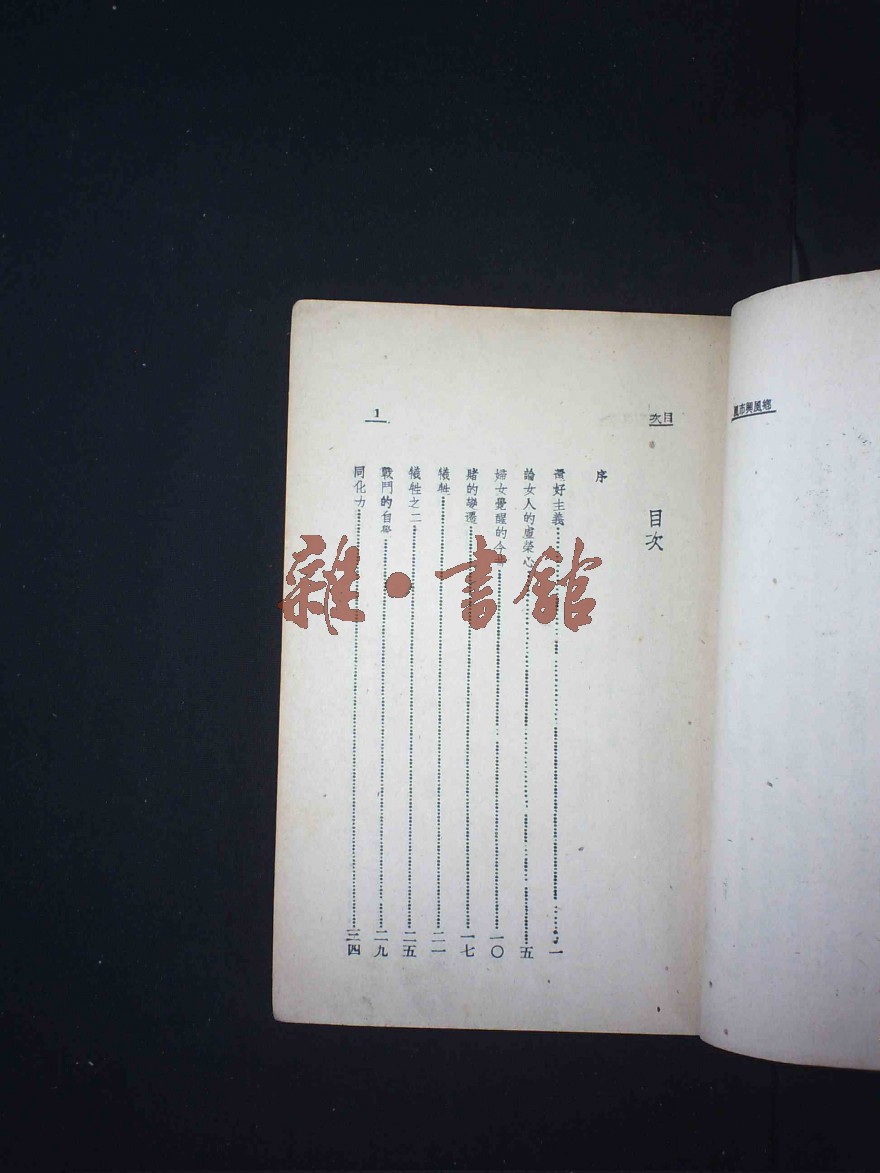 鄉風與市風
目次
1
目次
序
還好主義……一
論女人的虛榮心……五
婦女覺醒的今……一〇
賭的變遷……一七
犧牲……二一
犧牲之二……二五
戰鬥的自……二九
同化力……三四
雜·書館